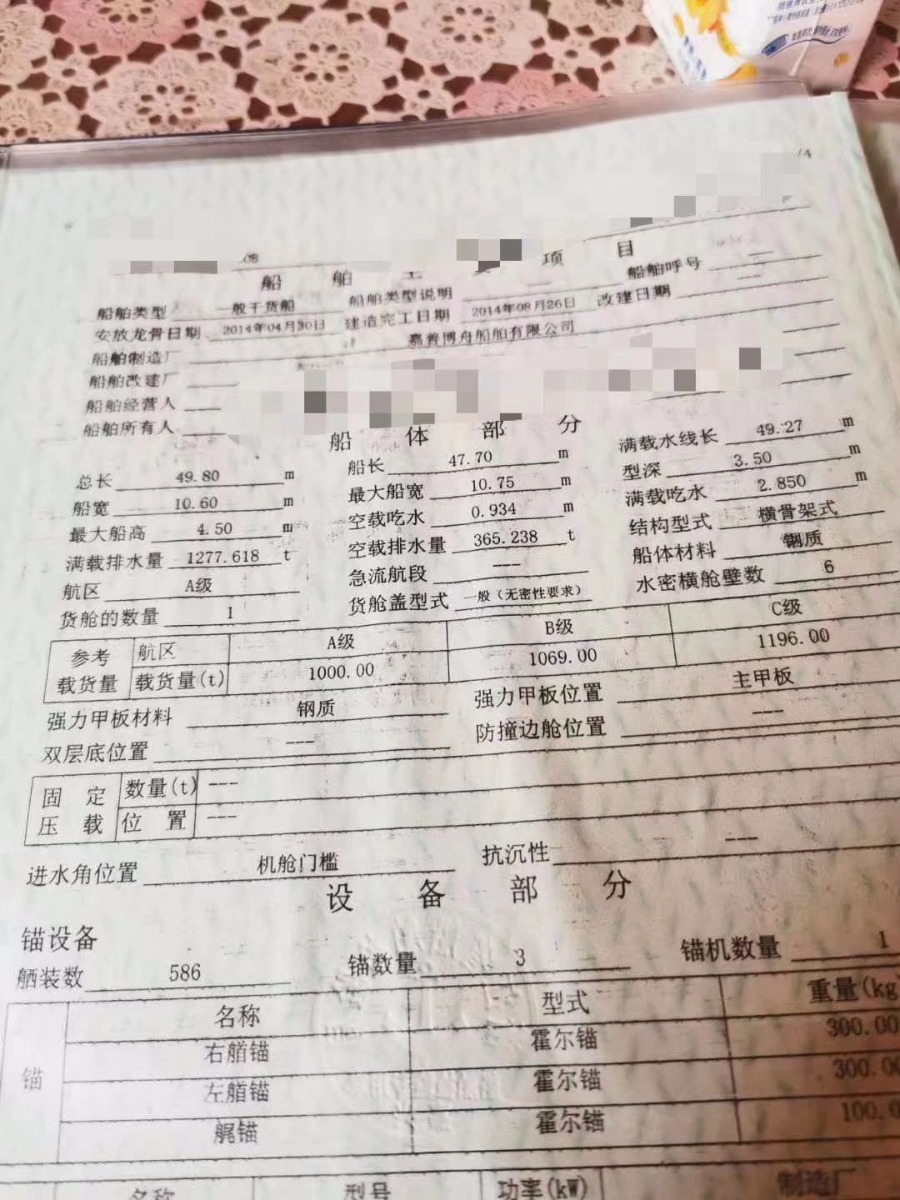 /4
08
船舶主要项目
船舶类型 一般干货船 船舶类型说明 --- 船舶呼号 ---
安放龙骨日期 2014年04月30日 建造完工日期 2014年08月26日 改建日期 ---
船舶制造厂 嘉善博舟船舶有限公司
船舶改建厂
船舶经营人
船舶所有人
船体部分
总长 49.80 m 船长 47.70 m 满载水线长 49.27 m
船宽 10.60 m 最大船宽 10.75 m 型深 3.50 m
最大船高 4.50 m 空载吃水 0.934 m 满载吃水 2.850 m
满载排水量 1277.618 t 空载排水量 365.238 t 结构型式 横骨架式
航区 A级 急流航段 --- 船体材料 钢质
货舱的数量 1 货舱盖型式 一般（无密性要求） 水密横舱壁数 6
参考 航区 A级 B级 C级
载货量 载货量(t) 1000.00 1069.00 1196.00
强力甲板材料 钢质 强力甲板位置 主甲板
双层底位置 --- 防撞边舱位置 ---
固定 数量(t) ---
压载 位置 ---
进水角位置 机舱门槛 抗沉性 ---
设备部分
锚设备
舾装数 586 锚数量 3 锚机数量 1
名称 型式 重量(kg)
锚 右艏锚 霍尔锚 300.00
左艏锚 霍尔锚 300.00
艉锚 霍尔锚 100.0
名称 型号 功率(kW) 制造厂